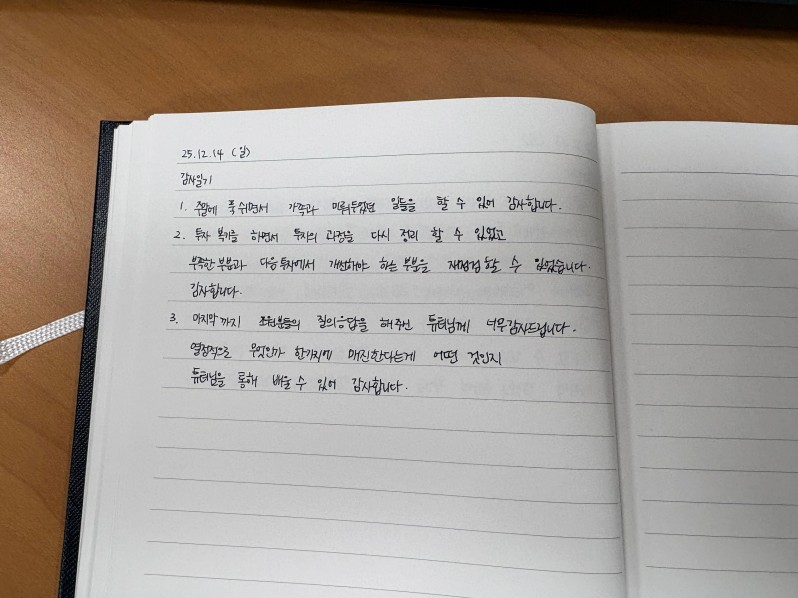 25.12.14 (일)
감사일기
1. 주말에 푹 쉬면서 가족과 미뤄두었던 일들을 할 수 있어 감사합니다.
2. 투자 복기를 하면서 투자의 과정을 다시 정리 할 수 있었고
부족한 부분과 다음 투자에서 개선해야 하는 부분을 재점검 할 수 있었습니다.
감사합니다.
3. 마지막까지 조원분들의 질의응답을 해주신 튜터님께 너무 감사드립니다.
열정적으로 무엇인가 한가지에 매진한다는게 어떤 것인지
튜터님을 통해 배울 수 있어 감사합니다.